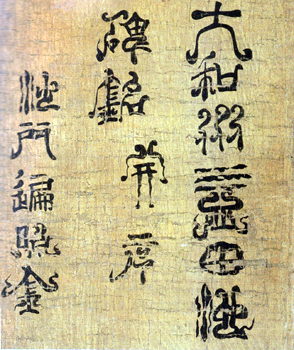 大和州益田池
碑銘并序
沙門遍照金